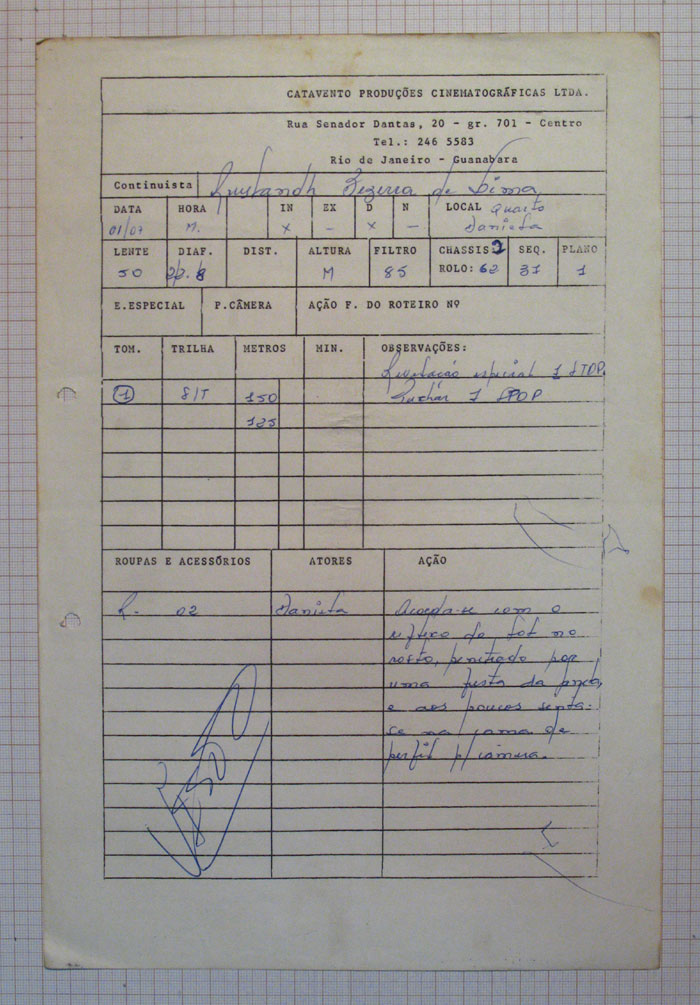 CATAVENTO PRODUÇÕES CINEMATOGRÁFICAS LTDA.
Rua Senador Dantas, 20 - gr. 701 - Centro
Tel.: 246 5583
Rio de Janeiro - Guanabara
Continuista Bezerra de Lima
DATA HORA IN EX D N LOCAL Quarto
01/07 M. X - X - Daniela
LENTE DIAF. DIST. ALTURA FILTRO CHASSIS: 2 SEQ. PLANO
50 M 85 ROLO: 62 31 1
E.ESPECIAL P.CÂMERA AÇÃO F. DO ROTEIRO Nº
TOM. TRILHA METROS MIN. OBSERVAÇÕES:
especial 1 STOP
1 S/T 150 Puchar 1 STOP
125
ROUPAS E ACESSÓRIOS ATORES AÇÃO
R. 02 Daniela Acorda-se com o
reflexo do sol no
rosto, penetrado por
uma fresta da porta,
e aos poucos senta-
se na cama de
perfil p/ câmera.